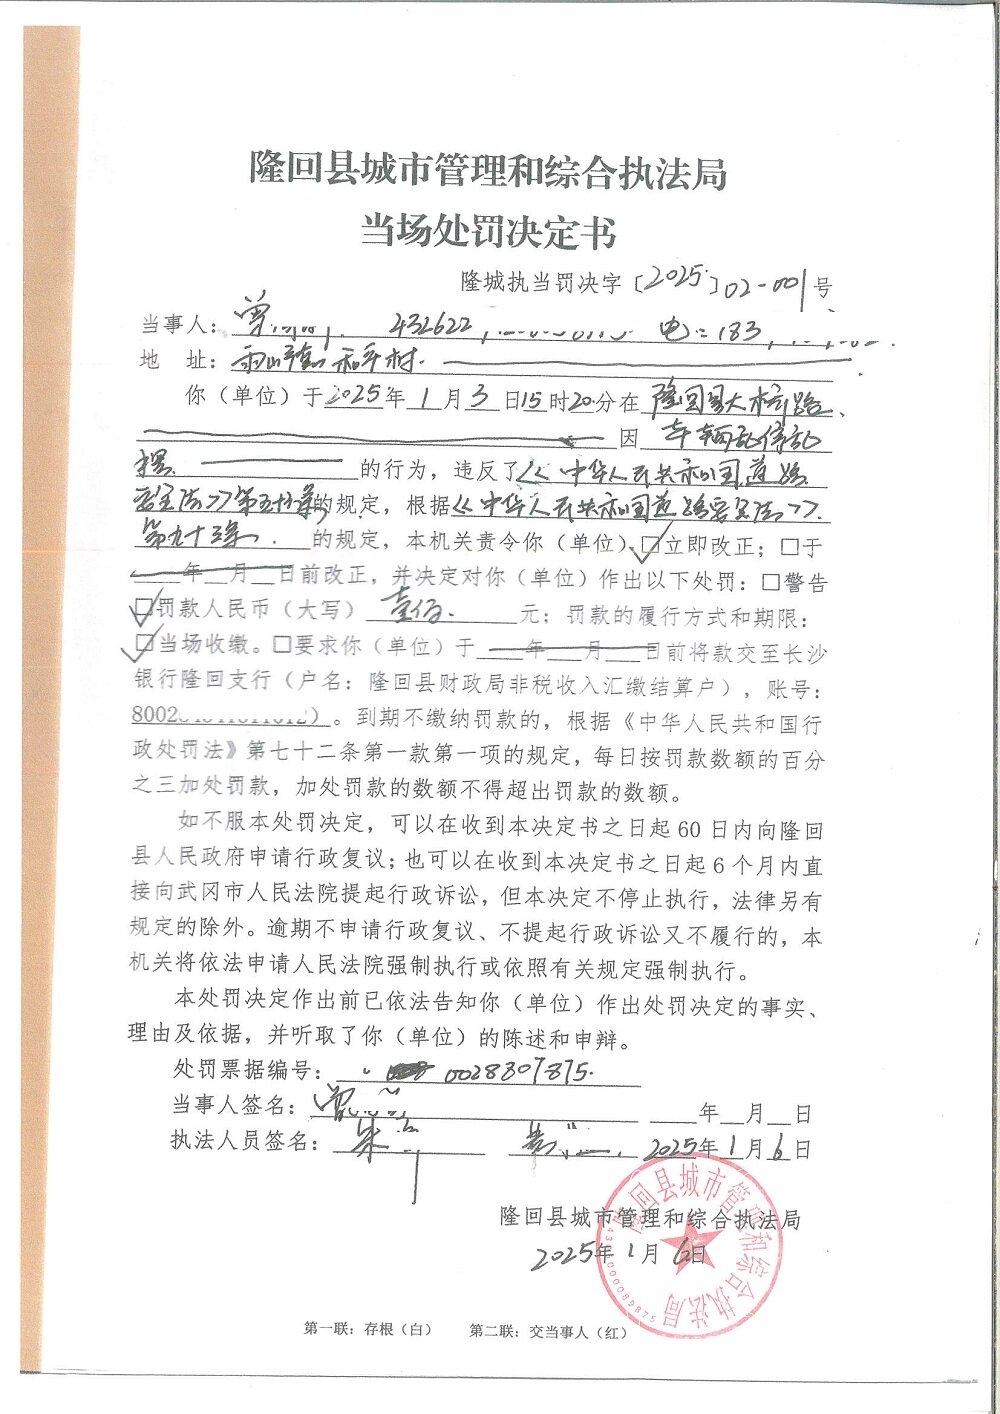 隆回县城市管理和综合执法局
当场处罚决定书
隆城执当罚决字〔2025〕02-001号
当事人：曾 432622 电：183
地 址：和平村.
你（单位）于2025年1月3日15时20分在隆回县大桥路、
因车辆乱停乱
摆 的行为，违反了《中华人民共和国道路
安全法》第五十六条的规定，根据《中华人民共和国道路安全法》
第九十三条. 的规定，本机关责令你（单位）☑立即改正；□于
年 月 日前改正，并决定对你（单位）作出以下处罚：□警告
☑罚款人民币（大写）壹佰. 元；罚款的履行方式和期限：
☑当场收缴。□要求你（单位）于 年 月 日前将款交至长沙
银行隆回支行（户名：隆回县财政局非税收入汇缴结算户），账号：
8002 ）。到期不缴纳罚款的，根据《中华人民共和国行
政处罚法》第七十二条第一款第一项的规定，每日按罚款数额的百分
之三加处罚款，加处罚款的数额不得超出罚款的数额。
如不服本处罚决定，可以在收到本决定书之日起60日内向隆回
县人民政府申请行政复议；也可以在收到本决定书之日起6个月内直
接向武冈市人民法院提起行政诉讼，但本决定不停止执行，法律另有
规定的除外。逾期不申请行政复议、不提起行政诉讼又不履行的，本
机关将依法申请人民法院强制执行或依照有关规定强制执行。
本处罚决定作出前已依法告知你（单位）作出处罚决定的事实、
理由及依据，并听取了你（单位）的陈述和申辩。
处罚票据编号：0028307875.
当事人签名：曾 年 月 日
执法人员签名：朱 黄 2025年1月6日
隆回县城市管理和综合执法局
2025年1月6日
隆回县城市管理和综合执法局
第一联：存根（白） 第二联：交当事人（红）